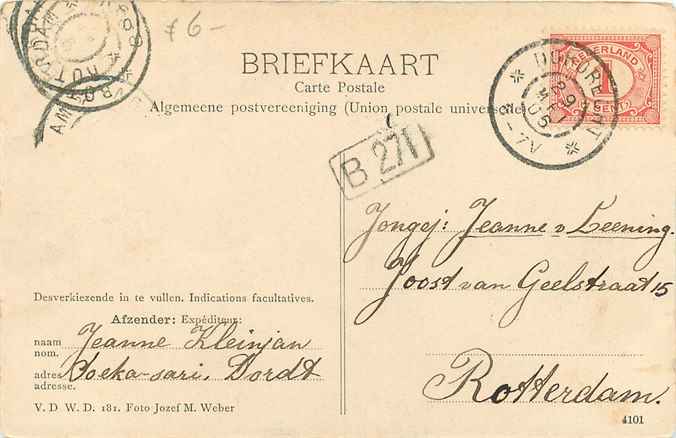 f 6-
BRIEFKAART
Carte Postale
Algemeene postvereeniging (Union postale universelle)
NEDERLAND
1
CENT
DORDRECHT
29
MEI
05
6-7V
ROTTERDAM
B 271
Jongej: Jeanne v Leening.
Joost van Geelstraat 15
Rotterdam.
Desverkiezende in te vullen. Indications facultatives.
Afzender: Expéditeur:
naam Jeanne Kleinjan
nom.
adres Soeka-sari. Dordt
adresse.
V. D W. D. 181. Foto Jozef M. Weber
4101